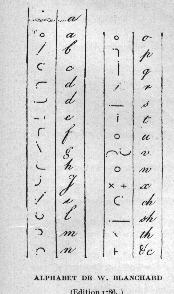 a
a
b
c
d
d
e
f
g
h
l
m
n
o
p
q
r
s
t
u
v
w
x
ch
sh
th
&c
ALPHABET DE W. BLANCHARD
(Edition 1786.)